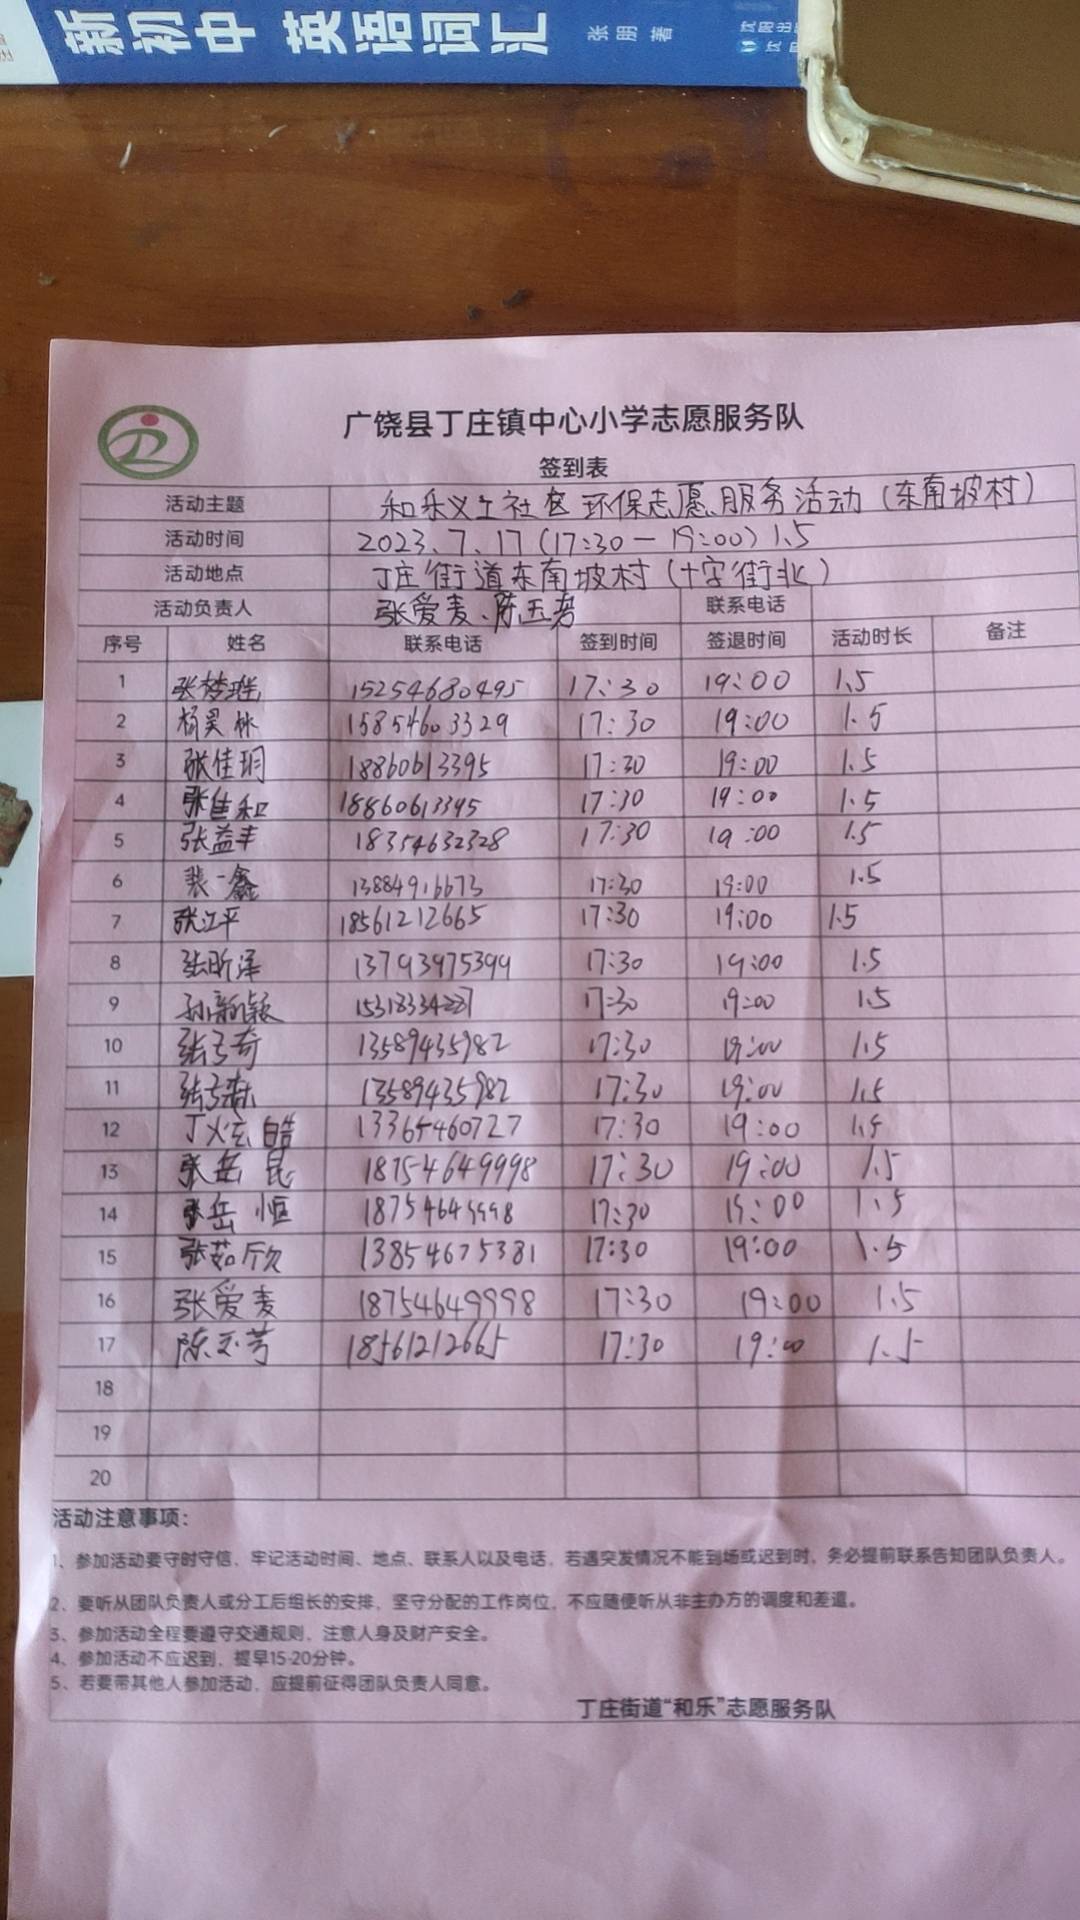 新初中 英语词汇 张朋 著
广饶县丁庄镇中心小学志愿服务队
签到表
活动主题 和乐义工社区环保志愿服务活动(东南坡村)
活动时间 2023.7.17(17:30—19:00)1.5
活动地点 丁庄街道东南坡村(十字街北)
活动负责人 张爱麦、陈玉芳 联系电话
序号 姓名 联系电话 签到时间 签退时间 活动时长 备注
1 张梦 15254680495 17:30 19:00 1.5
2 杨昊林 15854603329 17:30 19:00 1.5
3 张佳玥 18860613395 17:30 19:00 1.5
4 张佳和 18860613395 17:30 19:00 1.5
5 张益丰 18354632328 17:30 19:00 1.5
6 裴一鑫 13884916673 17:30 19:00 1.5
7 张江平 18561212665 17:30 19:00 1.5
8 张昕泽 13793975399 17:30 19:00 1.5
9 孙新颖 17:30 19:00 1.5
10 张弓奇 13589435982 17:30 19:00 1.5
11 张弓森 13589435982 17:30 19:00 1.5
12 丁炫皓 13365460727 17:30 19:00 1.5
13 张岳昆 18754649998 17:30 19:00 1.5
14 张岳恒 18754649998 17:30 19:00 1.5
15 张茹欣 13854675381 17:30 19:00 1.5
16 张爱麦 18754649998 17:30 19:00 1.5
17 陈玉芳 18561212665 17:30 19:00 1.5
18
19
20
活动注意事项:
1、参加活动要守时守信,牢记活动时间、地点、联系人以及电话,若遇突发情况不能到场或迟到时,务必提前联系告知团队负责人。
2、要听从团队负责人或分工后组长的安排,坚守分配的工作岗位,不应随便听从非主办方的调度和差遣。
3、参加活动全程要遵守交通规则,注意人身及财产安全。
4、参加活动不应迟到,提早15-20分钟。
5、若要带其他人参加活动,应提前征得团队负责人同意。
丁庄街道“和乐”志愿服务队